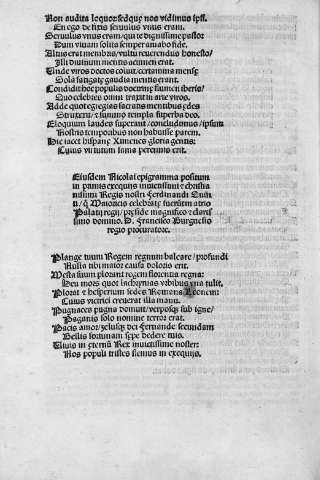 Non audita loquor sed que nos vidimus ipsi.
En ego de seruis seruulus vnus eram.
Seruulus vnus eram, qui te dignissime pastor
Dum viuam solita semper amabo fide.
Altus erat membris, vultu reuerendus honesto,
Illi diuinum mentis acumen erat.
Unde viros doctos coluit, certamina mensis
Sola fatigatis gaudia mentis erant.
Condidit hoc populis doctrine flumen iberis,
Quo celebres omni traxit in arte viros.
Adde quot egregias sacratis mentibus edes
Struxerit, & summo templa superba deo.
Eloquium laudes superant, concludimus, ipsum
Nostris temporibus non habuisse parem.
Hic iacet hispane Ximenes gloria gentis:
Cuius virtutum fama perennis erit.
Eiusdem Nicolai epigramma positum
in pannis exequijs inuictissimi & christia
nissimi Regis nostri Ferdinandi Quin
ti, que Maioricis celebrate fuerunt atrio
Palatij regij, preside magnifico & claris
simo domino. D. Francisco Burguesio
regio procuratore.
Plange tuum Regem regnum baleare, profundi
Nulla tibi maior causa doloris erit.
Mesta suum plorant regem florentia regna:
Heu mors quot lachrymas vrbibus vna tulit.
Plorat & hesperium sedes Romana Leonem:
Cuius victrici creuerat illa manu.
Pugnaces pugna domuit, verposque sub igne,
Paganis solo nomine terror erat.
Pacis amor, zelusque dei Fernande secundam
Bellis fortunam sepe dedere tuis.
Viuis in eternum Rex inuictissime noster:
Nos populi tristes flemus in exequijs.